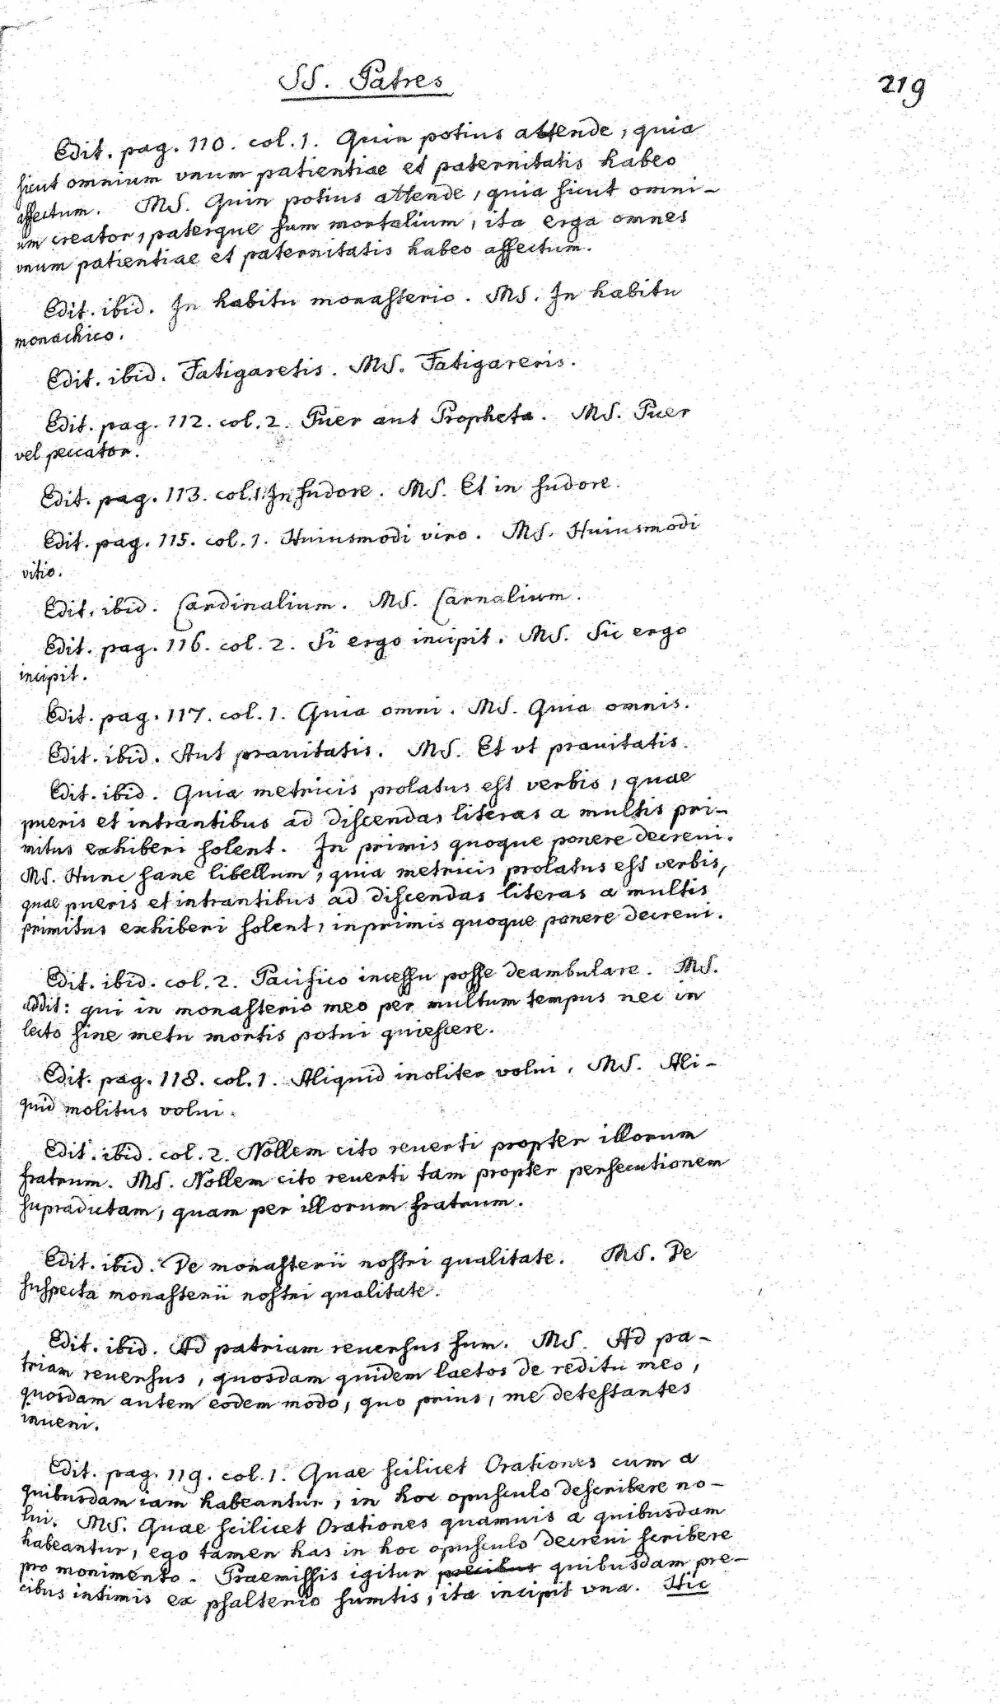 SS. Patres
219
Edit. pag. 110. col. 1. Quin potius attende, quia
sicut omnium vnum patientiae et paternitatis habeo
affectum. MS. Quin potius attende, quia sicut omni-
um creator, paterque sum mortalium, ita erga omnes
vnum patientiae et paternitatis habeo affectum.
Edit. ibid. In habitu monasterio. MS. In habitu
monachico.
Edit. ibid. Fatigaretis. MS. Fatigareris.
Edit. pag. 112. col. 2. Puer aut Propheta. MS. Puer
vel peccator.
Edit. pag. 113. col. 1. In sudore. MS. Et in sudore.
Edit. pag. 115. col. 1. Huiusmodi viro. MS. Huiusmodi
vitio.
Edit. ibid. Cardinalium. MS. Carnalium.
Edit. pag. 116. col. 2. Si ergo incipit. MS. Sic ergo
incipit.
Edit. pag. 117. col. 1. Quia omni. MS. Quia omnis.
Edit. ibid. Aut prauitatis. MS. Et vt prauitatis.
Edit. ibid. Quia metricis prolatus est verbis, quae
pueris et intrantibus ad discendas literas a multis pri-
mitus exhiberi solent. In primis quoque ponere decreui.
MS. Hunc sane libellum, quia metricis prolatus est verbis,
quae pueris et intrantibus ad discendas literas a multis
primitus exhiberi solent, inprimis quoque ponere decreui.
Edit. ibid. col. 2. Pacifico incessu posse deambulare. MS.
addit: qui in monasterio meo per multum tempus nec in
lecto sine metu mortis potui quiescere.
Edit. pag. 118. col. 1. Aliquid inoliter volui. MS. Ali-
quid molitus volui.
Edit. ibid. col. 2. Nollem cito reuerti propter illorum
fratrum. MS. Nollem cito reuerti tam propter persecutionem
supradictam, quam per illorum fratrum.
Edit. ibid. De monasterii nostri qualitate. MS. De
suspecta monasterii nostri qualitate.
Edit. ibid. Ad patriam reuersus sum. MS. Ad pa-
triam reuersus, quosdam quidem laetos de reditu meo,
quosdam autem eodem modo, quo prius, me detestantes
inueni.
Edit. pag. 119. col. 1. Quae scilicet Orationes cum a
quibusdam iam habeantur, in hoc opusculo describere no-
lui. MS. Quae scilicet Orationes quamuis a quibusdam
habeantur, ego tamen has in hoc opusculo decreui scribere
pro monimento. Praemissis igitur precibus quibusdam pre-
cibus intimis ex psalterio sumtis, ita incipit vna. Hic